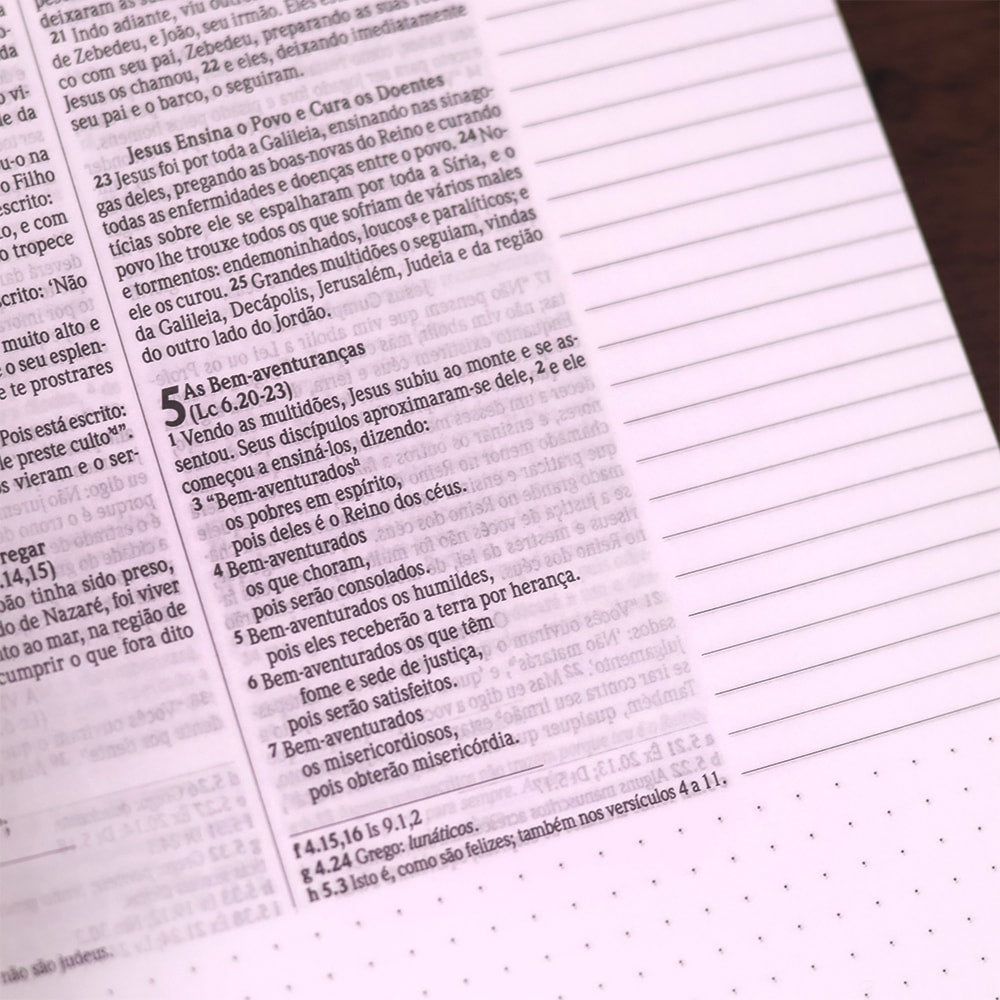 o-
da
o vi-
le da
u-o na
o Filho
escrito:
o, e com
o tropece
scrito: ‘Não
muito alto e
o seu esplen-
e te prostrares
Pois está escrito:
le preste culto”.
s vieram e o ser-
regar
.14,15)
oão tinha sido preso,
do de Nazaré, foi viver
nto ao mar, na região de
cumprir o que fora dito
não são judeus.
deixaram as
21 Indo adiante, viu
de Zebedeu, e João, seu irmão. Eles
co com seu pai, Zebedeu, preparando as suas
Jesus os chamou, 22 e eles, deixando imediatamente
seu pai e o barco, o seguiram.
Jesus Ensina o Povo e Cura os Doentes
23 Jesus foi por toda a Galileia, ensinando nas sinago-
gas deles, pregando as boas-novas do Reino e curando
todas as enfermidades e doenças entre o povo. 24 No-
tícias sobre ele se espalharam por toda a Síria, e o
povo lhe trouxe todos os que sofriam de vários males
e tormentos: endemoninhados, loucosᵍ e paralíticos; e
ele os curou. 25 Grandes multidões o seguiam, vindas
da Galileia, Decápolis, Jerusalém, Judeia e da região
do outro lado do Jordão.
5 As Bem-aventuranças
(Lc 6.20-23)
1 Vendo as multidões, Jesus subiu ao monte e se as-
sentou. Seus discípulos aproximaram-se dele, 2 e ele
começou a ensiná-los, dizendo:
3 “Bem-aventuradosʰ
os pobres em espírito,
pois deles é o Reino dos céus.
4 Bem-aventurados
os que choram,
pois serão consolados.
5 Bem-aventurados os humildes,
pois eles receberão a terra por herança.
6 Bem-aventurados os que têm
fome e sede de justiça,
pois serão satisfeitos.
7 Bem-aventurados
os misericordiosos,
pois obterão misericórdia.
f 4.15,16 Is 9.1,2
g 4.24 Grego: lunáticos.
h 5.3 Isto é, como são felizes; também nos versículos 4 a 11.